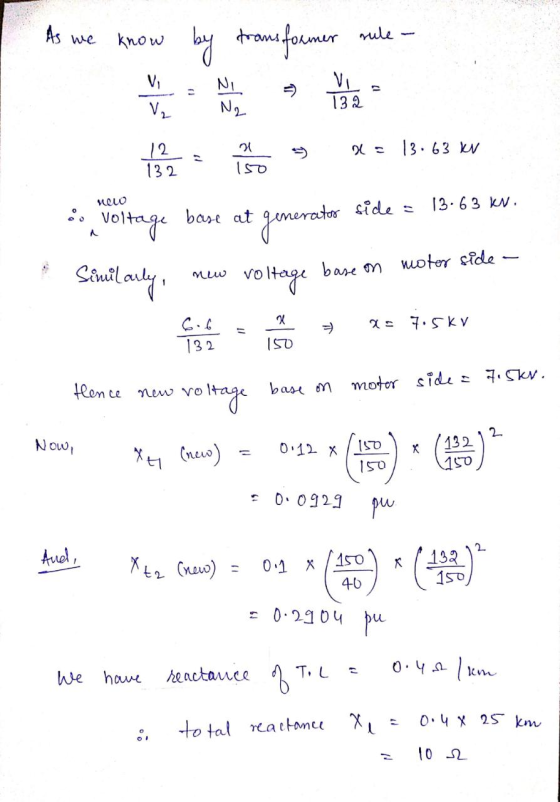 As we know by transformer rule -
V1/V2 = N1/N2 ⇒ V1/132 =
12/132 = x/150 ⇒ x = 13.63 kV
∴ new voltage base at generator side = 13.63 kV.
Similarly, new voltage base on motor side -
6.6/132 = x/150 ⇒ x = 7.5 kV
Hence new voltage base on motor side = 7.5 kV.
Now, Xt1 (new) = 0.12 × (150/150) × (132/150)²
= 0.0929 pu
And, Xt2 (new) = 0.1 × (150/40) × (132/150)²
= 0.2904 pu
We have reactance of T.L = 0.4 Ω / km
∴ total reactance Xl = 0.4 × 25 km
= 10 Ω